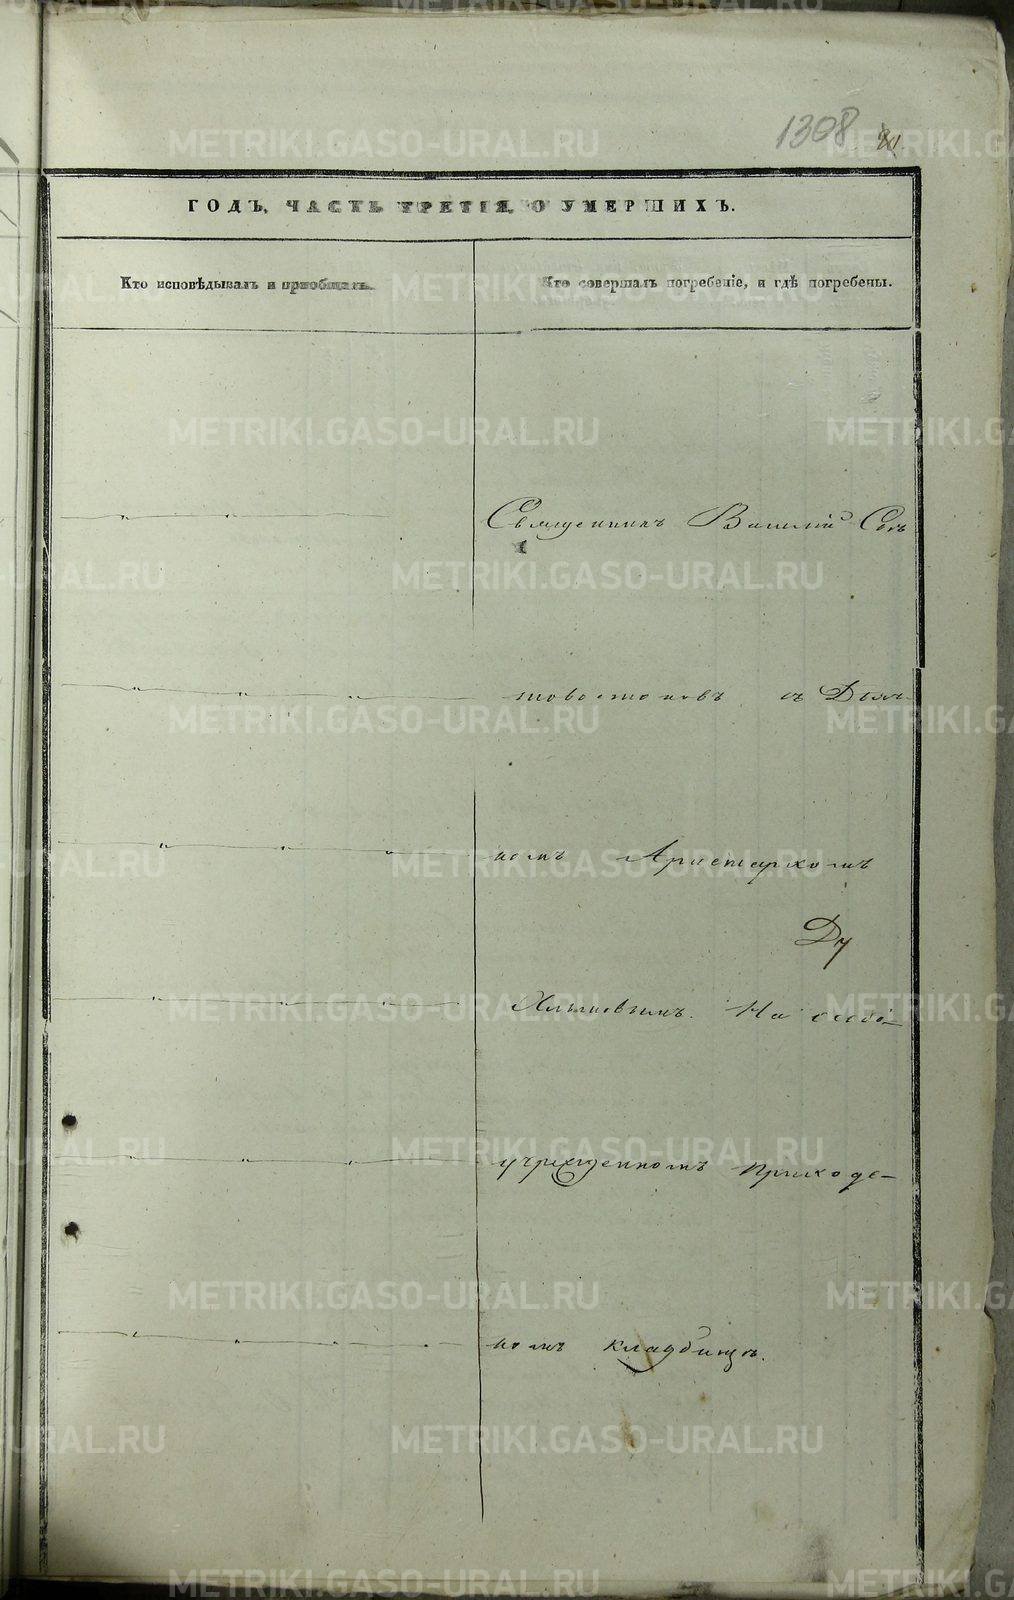 1308
ГОДЪ, ЧАСТЬ ТРЕТІЯ, О УМЕРШИХЪ.
Кто исповѣдывалъ и приобщалъ.
Кто совершалъ погребеніе, и гдѣ погребены.
Священникъ Василій
съ Дьяч
комъ Аристархомъ
Ду
Хлыновымъ. На особо
учрежденномъ приходс
комъ кладбищѣ.
METRIKI.GASO-URAL.RU